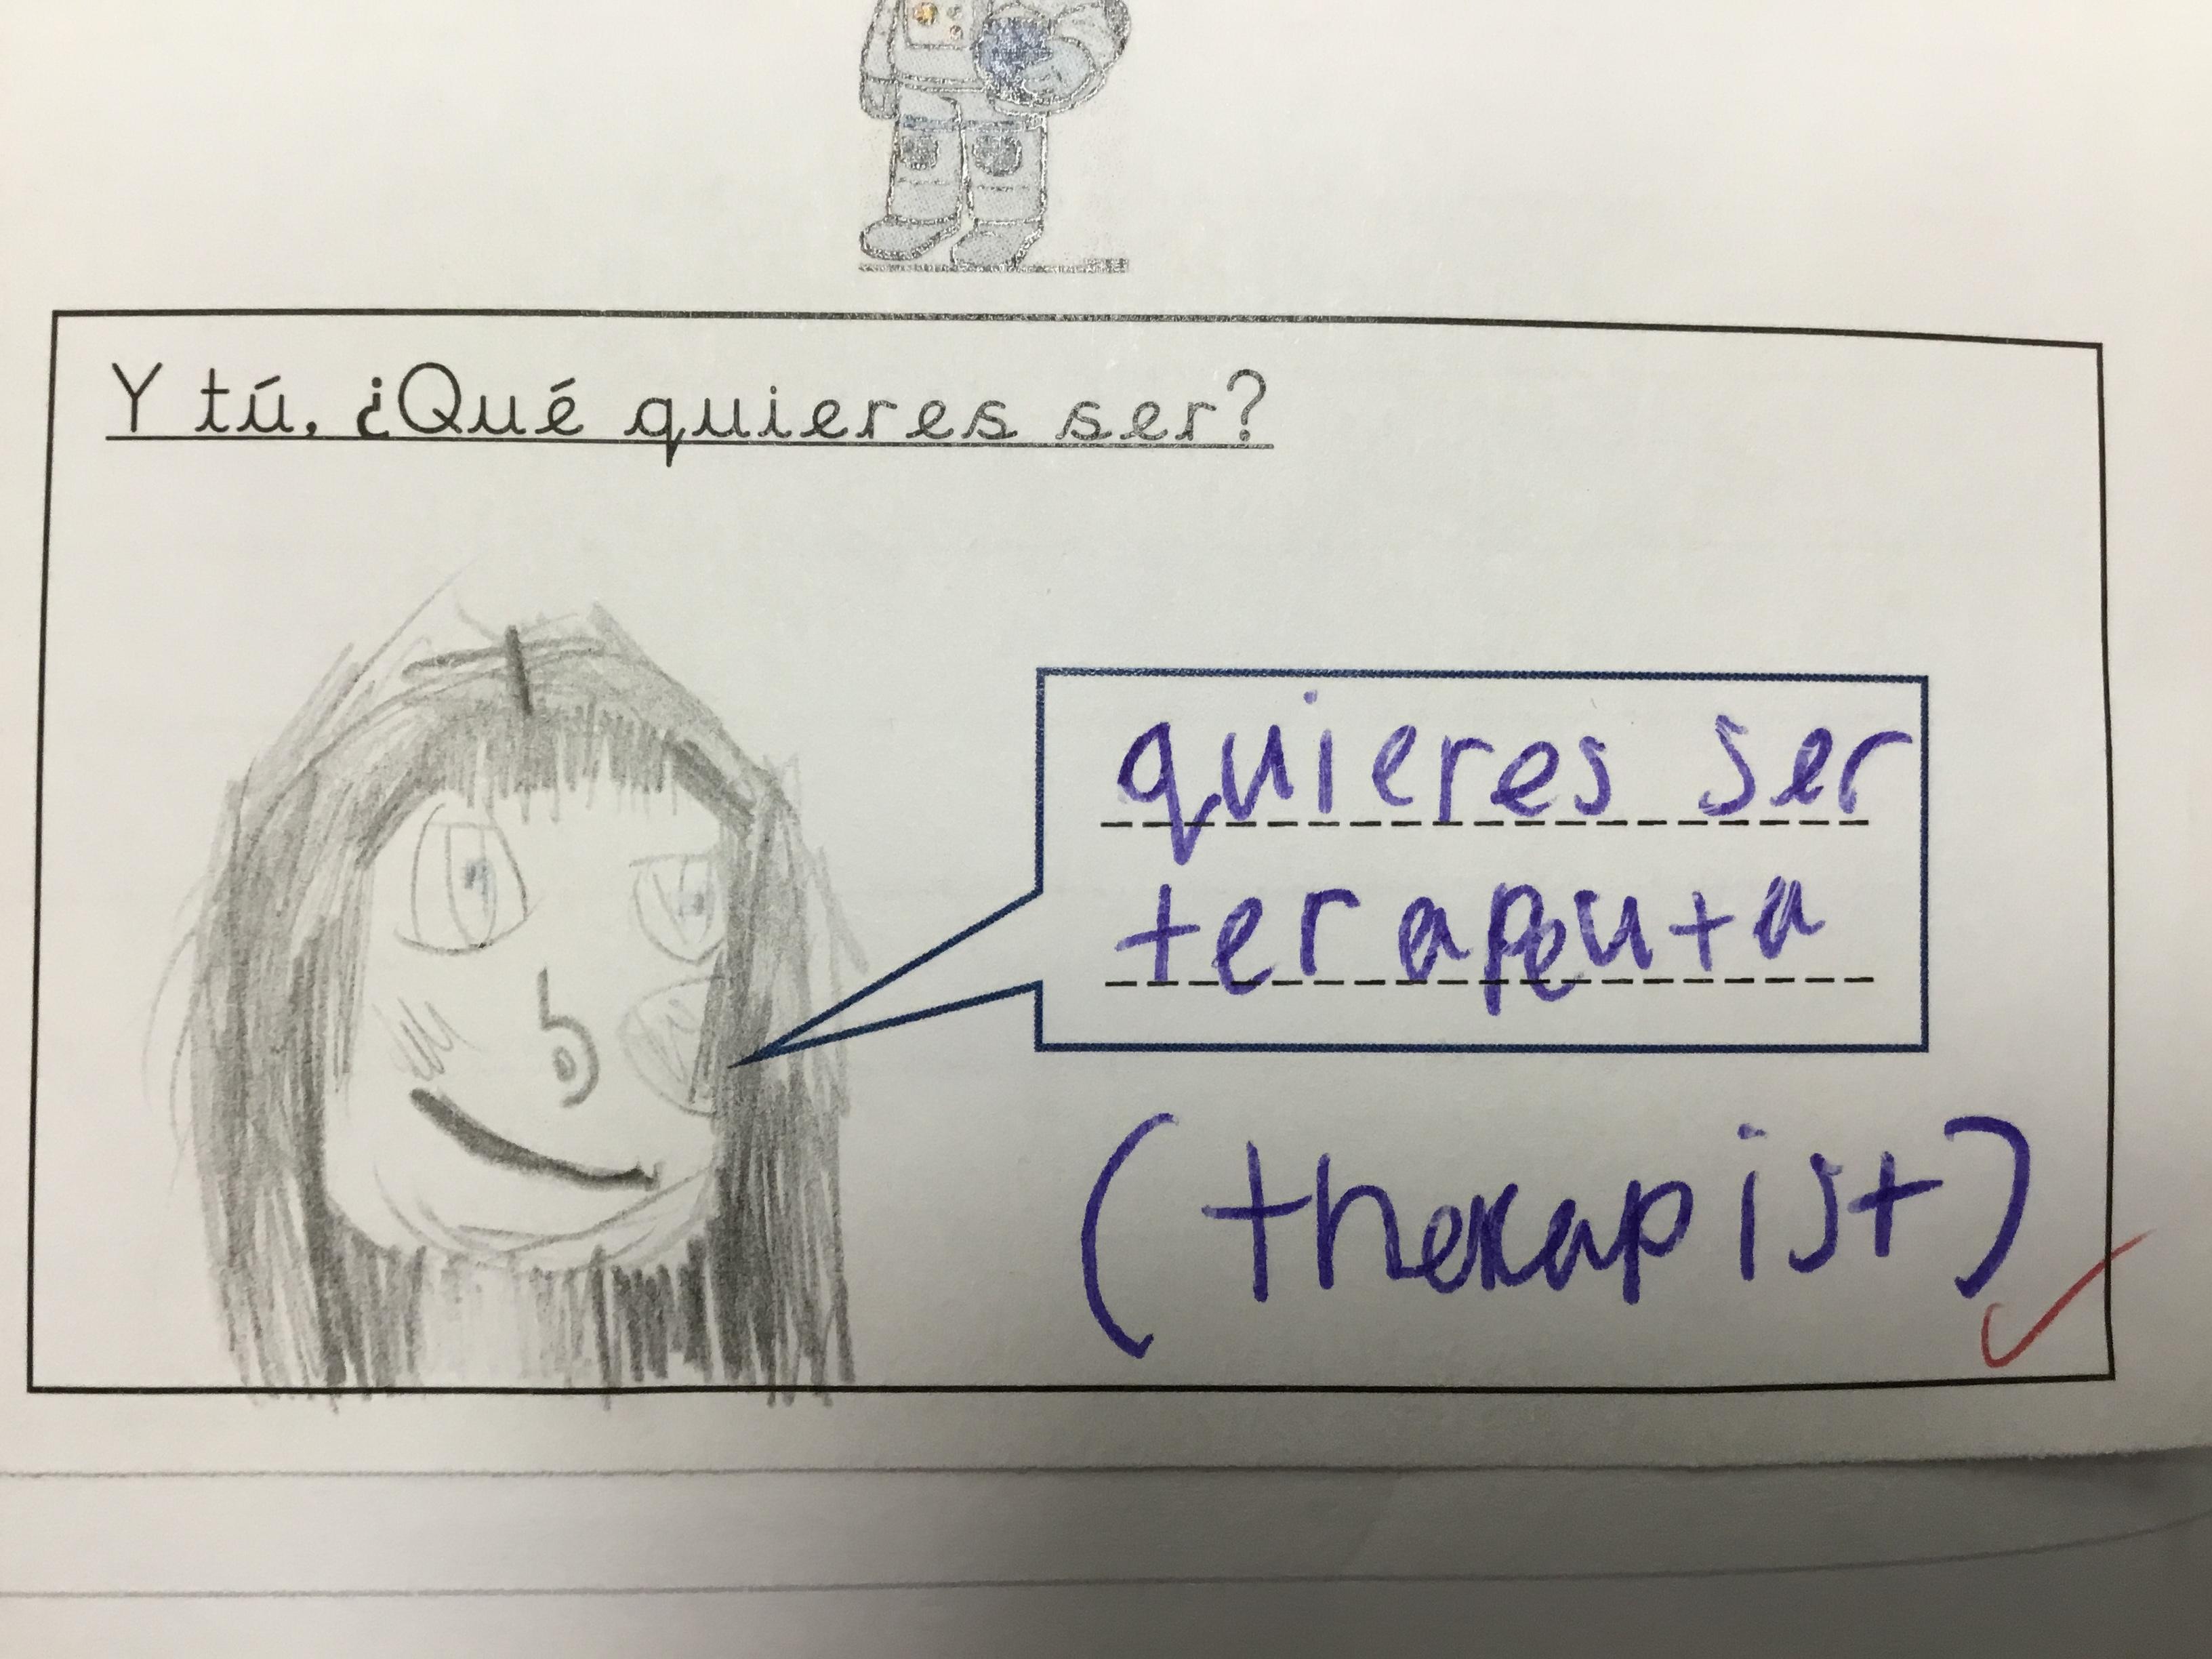 Y tú, ¿Qué quieres ser?
quieres ser
terapeuta
(therapist)